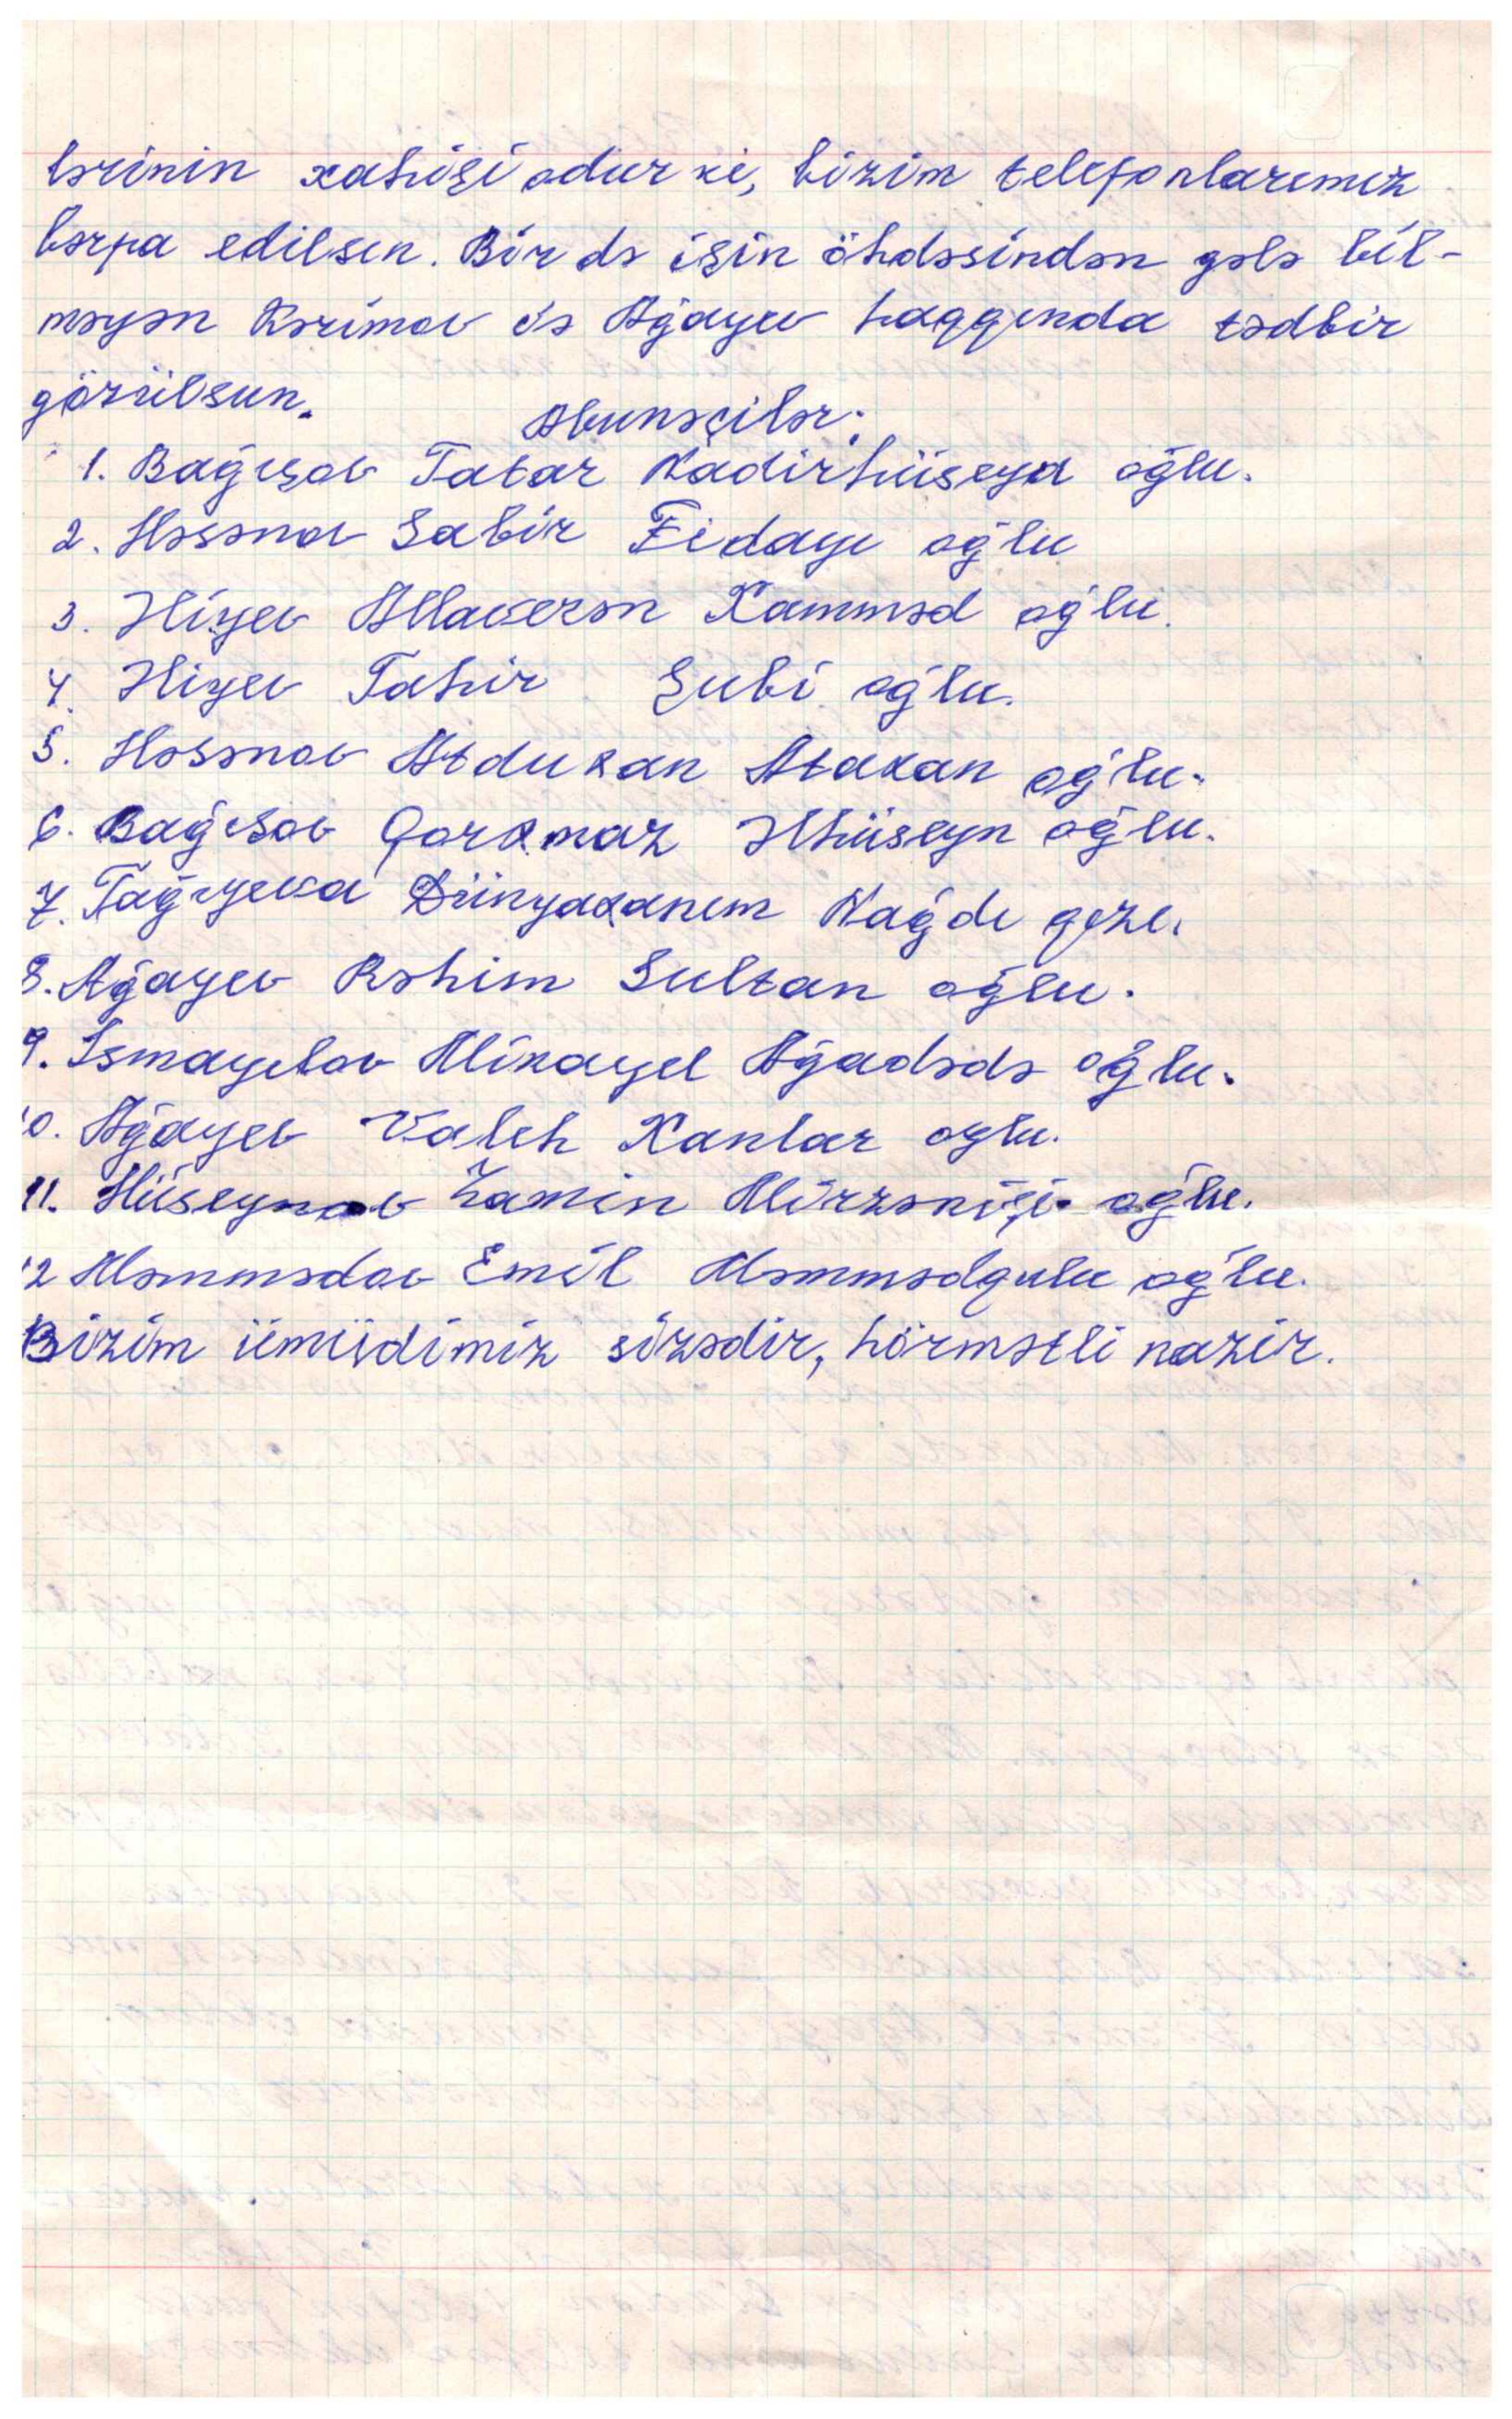 lərinin xahişi odur ki, bizim telefonlarımız
bərpa edilsın. Bir də işin öhdəsindən gələ bil-
məyən Kərimov və Ağayev haqqında tədbir
görülsun.
Abunəçilər:
1. Bağışov Tatar Nadirhüseyn oğlu.
2. Həsənov Sabir Fidayı oğlu
3. Əliyev Allaverən Xamməd oğlu.
4. Əliyev Tahir Şubi oğlu.
5. Həsənov Atduxan Ataxan oğlu.
6. Bağışov Qorxmaz Əlhüseyn oğlu.
7. Tağıyeva Dünyaxanım Nağdı qızı.
8. Ağayev Rəhim Sultan oğlu.
9. İsmayılov Mikayıl Ağadədə oğlu.
10. Ağayev Valeh Xanlar oglu.
11. Hüseynov Zamin Mirzəkişi oğlu.
12 Məmmədov Emil Məmmədqulu oğlu.
Bizim ümüdimiz sizədir, hörmətli nazir.